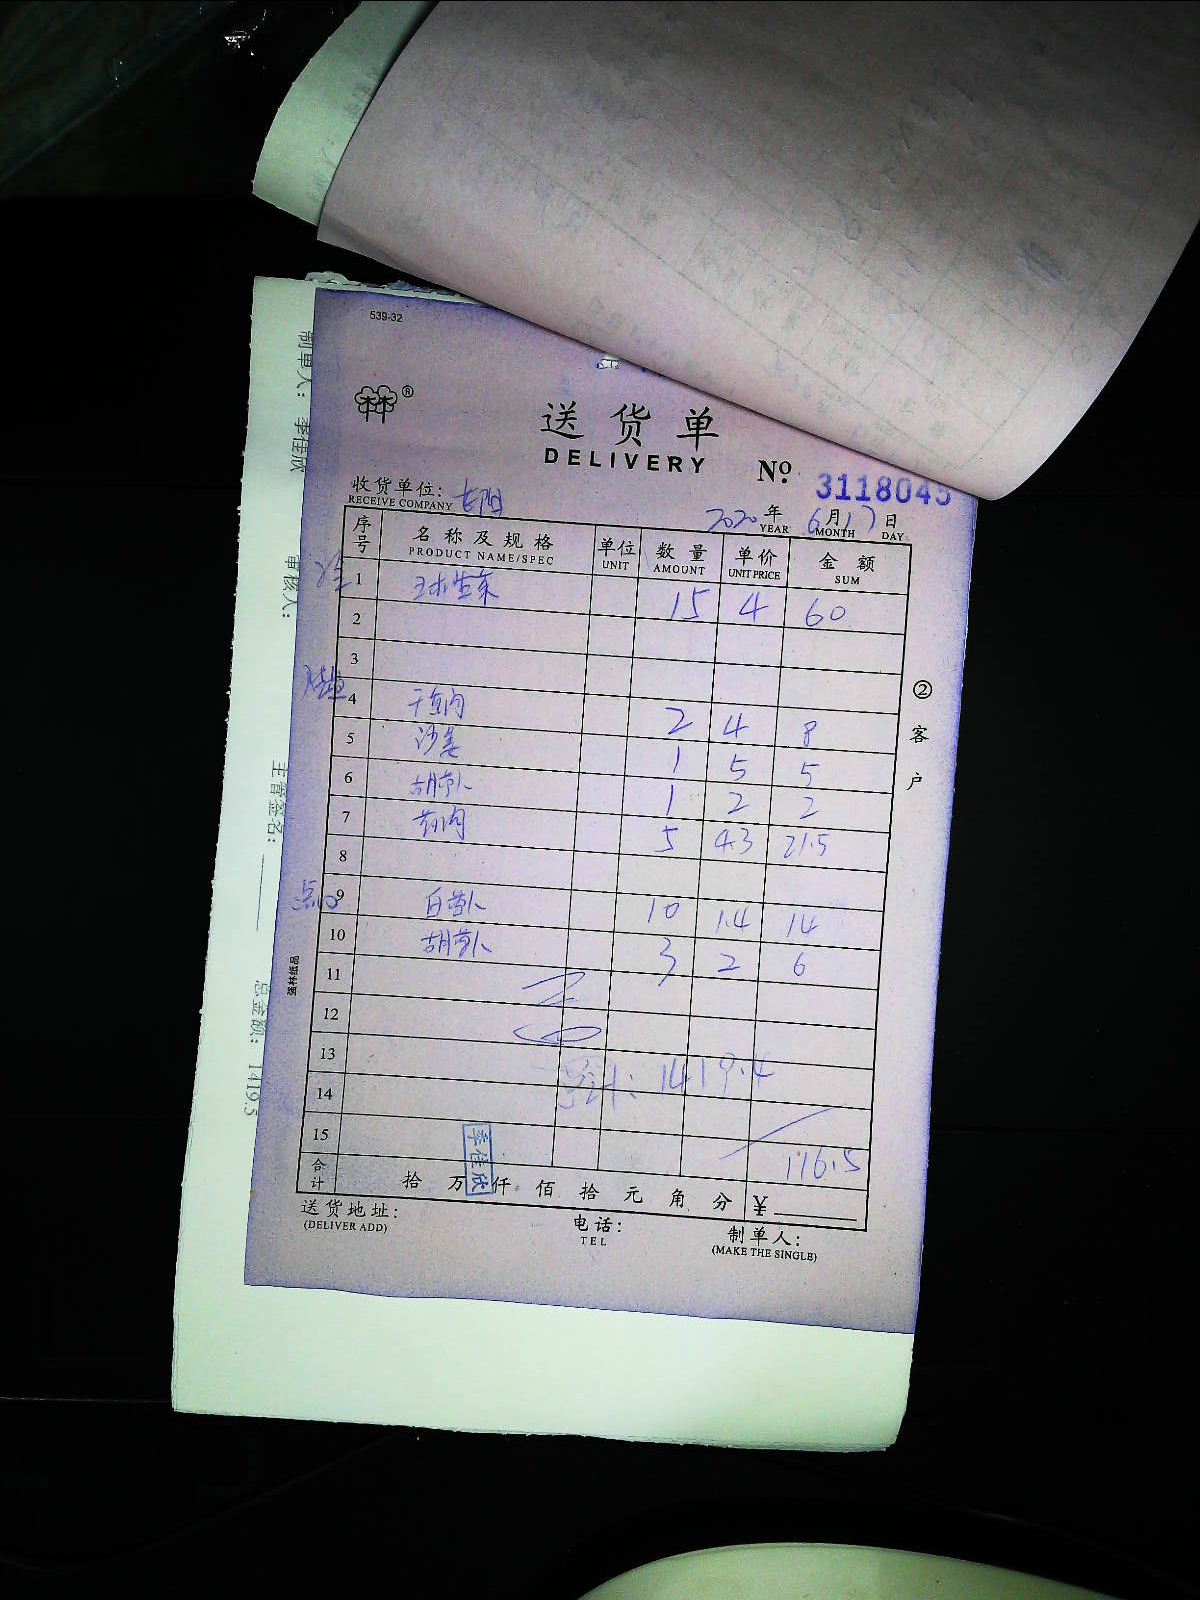 539-32
®
送货单
DELIVERY
No. 3118045
收货单位:
RECEIVE COMPANY
2020年6月17日
YEAR MONTH DAY
序号 名称及规格 单位 数量 单价 金额
PRODUCT NAME/SPEC UNIT AMOUNT UNIT PRICE SUM
1 15 4 60
2
3
4 2 4 8
5 沙姜 1 5 5
6 胡萝卜 1 2 2
7 5 4.3 21.5
8
点心
9 白萝卜 10 1.4 14
10 胡萝卜 3 2 6
11
12
13
总计: 1419.4
14
15 116.5
合计 拾 万 仟 佰 拾 元 角 分 ¥
李佳欣
送货地址:
(DELIVER ADD)
电话:
TEL
制单人:
(MAKE THE SINGLE)
②客户
强林纸品
制单人: 李佳欣
审核人:
主管签名:
总金额: 1419.5